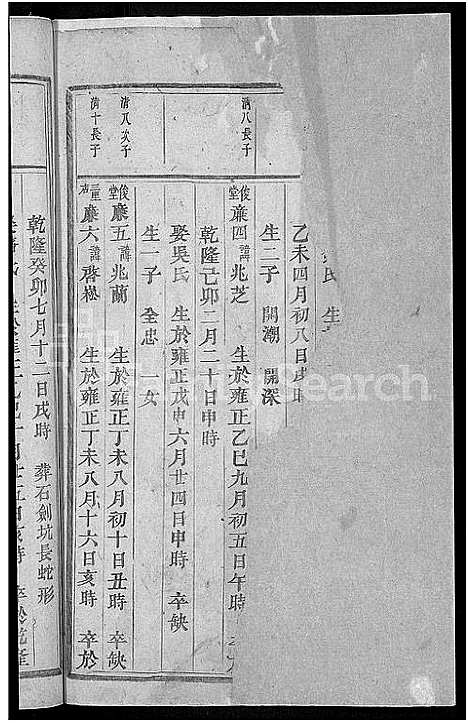 氏 生
乙未四月初八日戌時
生二子 開潮 開深
清八長子
俊堂 廉四 諱兆芝 生於雍正乙巳九月初五日午時
乾隆己卯二月二十日申時
娶吳氏 生於雍正戊申六月廿四日申時 卒缺
生一子 全忠 一女
清八次子
俊堂 廉五 諱兆蘭 生於雍正丁未八月初十日丑時 卒缺
清十長子
廉六 諱啓崧 生於雍正丁未八月十六日亥時 卒於
乾隆癸卯七月十二日戌時 葬石劍坑長蛇形
Search